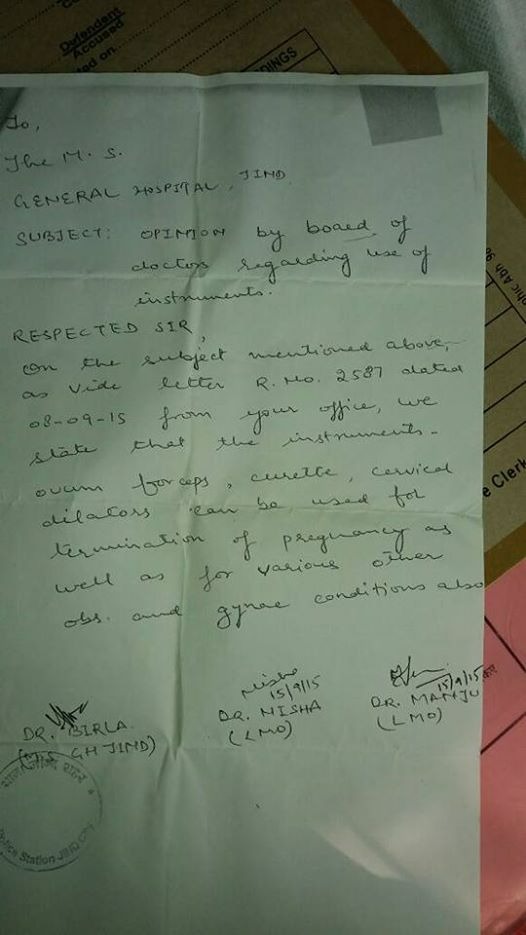 Defendant
Accused
ted on
DINGS
To,
The M.S.
GENERAL HOSPITAL, JIND
SUBJECT: OPINION by board of
doctors regarding use of
instruments.
RESPECTED SIR,
On the subject mentioned above,
as vide letter R. No. 2587 dated
08-09-15 from your office, we
state that the instruments-
ovum forceps, curette, cervical
dilators can be used for
termination of pregnancy as
well as for various other
obs. and gynae conditions also
Nisha
15/9/15
15/9/15
DR. BIRLA
DR. NISHA
DR. MANJU
(M.S GH JIND)
(LMO)
(LMO)
Police Station JIND City
blic Abh
e Clerk